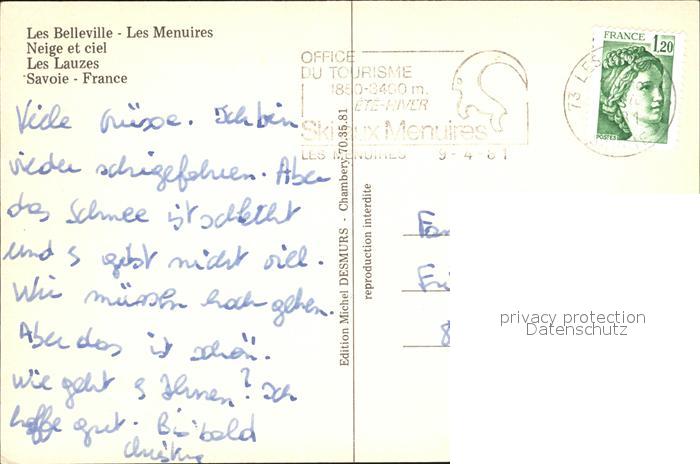 Les Belleville - Les Menuires
Neige et ciel
Les Lauzes
Savoie - France
OFFICE
DU TOURISME
1850-3400 m.
ÉTÉ-HIVER
Ski aux Menuires
LES MENUIRES 9-4-81
73 LES
FRANCE
1,20
POSTES
Viele Grüsse. Ich bin
wieder schigefahren. Aber
das Schnee ist schlecht
und s gibt nicht viel.
Wir müssen hoch gehen.
Aber das ist schön.
Wie geht s Ihnen? Ich
hoffe gut. Bis bald
Edition Michel DESMURS - Chambery 70.35.81
reproduction interdite
Fri
8
privacy protection
Datenschutz